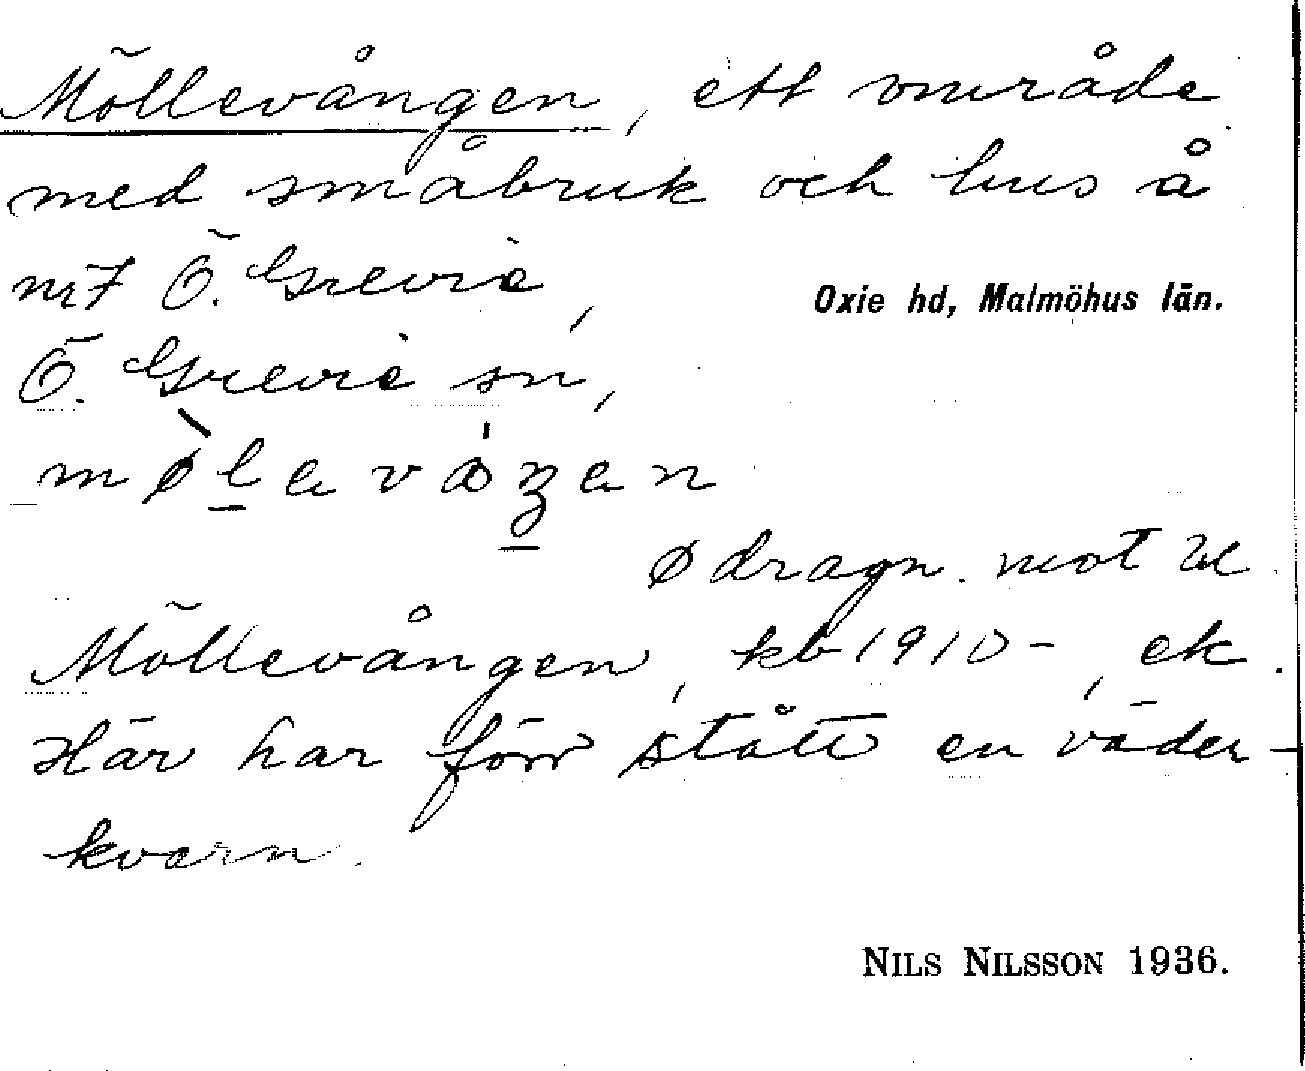 Möllevången, ett område
med småbruk och hus å
nr 7 Ö. Grevie,
Oxie hd, Malmöhus län.
Ö. Grevie sn,
mø̀laváŋan
ø dragn. mot œ
Möllevången, kb 1910-, ek.
Här har förr stått en väder-
kvarn.
NILS NILSSON 1936.